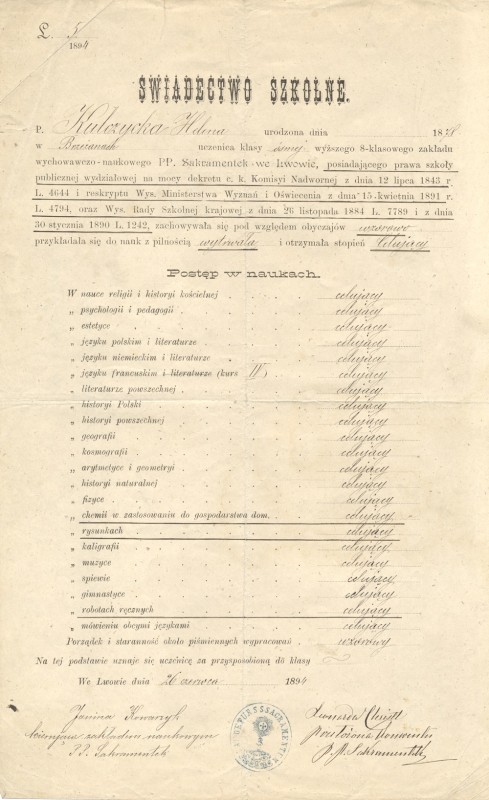 L. 5
1894
ŚWIADECTWO SZKOLNE.
P. Kulczycka Helena urodzona dnia 1878
w Brzeżanach uczenica klasy ósmej wyższego 8-klasowego zakładu
wychowawczo-naukowego PP. Sakramentek we Lwowie, posiadającego prawa szkoły
publicznej wydziałowej na mocy dekretu c. k. Komisyi Nadwornej z dnia 12 lipca 1843 r.
L. 4644 i reskryptu Wys. Ministerstwa Wyznań i Oświecenia z dnia 15 kwietnia 1891 r.
L. 4794, oraz Wys. Rady Szkolnej krajowej z dnia 26 listopada 1884 L. 7789 i z dnia
30 stycznia 1890 L. 1242, zachowywała się pod względem obyczajów wzorowo
przykładała się do nauk z pilnością wytrwałą i otrzymała stopień celujący
Postęp w naukach.
W nauce religii i historyi kościelnej celujący
„ psychologii i pedagogii celujący
„ estetyce celujący
„ języku polskim i literaturze celujący
„ języku niemieckim i literaturze celujący
„ języku francuskim i literaturze (kurs IV) celujący
„ literaturze powszechnej celujący
„ historyi Polski celujący
„ historyi powszechnej celujący
„ geografii celujący
„ kosmografii celujący
„ arytmetyce i geometryi celujący
„ historyi naturalnej celujący
„ fizyce celujący
„ chemii w zastosowaniu do gospodarstwa dom. celujący
„ rysunkach celujący
„ kaligrafii celujący
„ muzyce celujący
„ śpiewie celujący
„ gimnastyce celujący
„ robotach ręcznych celujący
„ mówieniu obcymi językami celujący
Porządek i staranność około piśmiennych wypracowań wzorowy
Na tej podstawie uznaje się uczenicę za przysposobioną do klasy
We Lwowie dnia 26 czerwca 1894
Janina Kowarzyk
zakładu naukowego
PP. Sakramentek
Leonarda
przełożona
P.P. Sakramentek